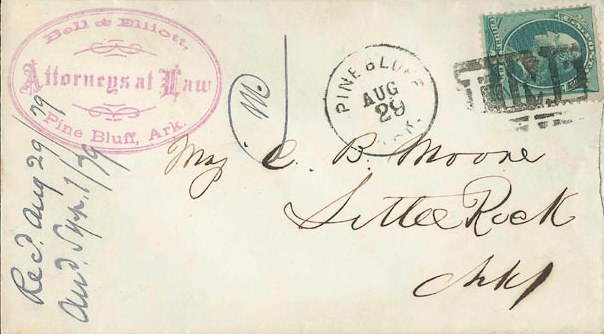 Bell & Elliott,
Attorneys at Law
Pine Bluff, Ark.
M.
PINE BLUFF
AUG
29
ARK.
Maj C. B. Moore
Little Rock
Arks
Recd. Aug 29/79
Ansd. Sep. 1/79